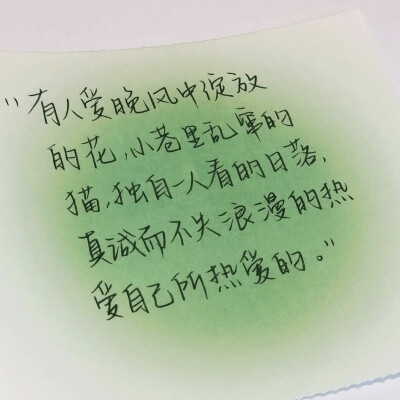 "有人爱晚风中绽放
的花,小巷里乱窜的
猫,独自一人看的日落,
真诚而不失浪漫的热
爱自己所热爱的。"